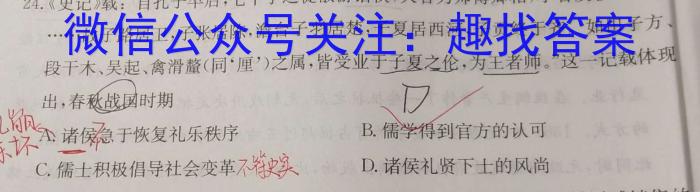 24.《史记》载：自孔子卒后，七十子之徒散游诸侯，大者为师傅卿相，
微信公众号关注：趣找答案
子夏居西河
子方、
段干木、吴起、禽滑釐(同“厘”)之属，皆受业于子夏之伦，为王者师。这一记载体现
出，春秋战国时期
A. 诸侯急于恢复礼乐秩序
B. 儒学得到官方的认可
C. 儒士积极倡导社会变革 不符史实
D. 诸侯礼贤下士的风尚